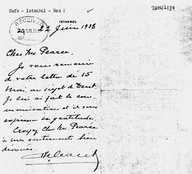 Safe - Istanbul - Box 1
ISTANBUL
RECEIVED
22 Juin 1938
Cher Mr Pearce
Je vous remercie
de votre lettre du 15
Mai, au sujet de
Je lui ai fait la com-
munication et il vous
exprime sa gratitude.
Croyez cher Mr Pearce
à mes sentiments bien
dévoués.